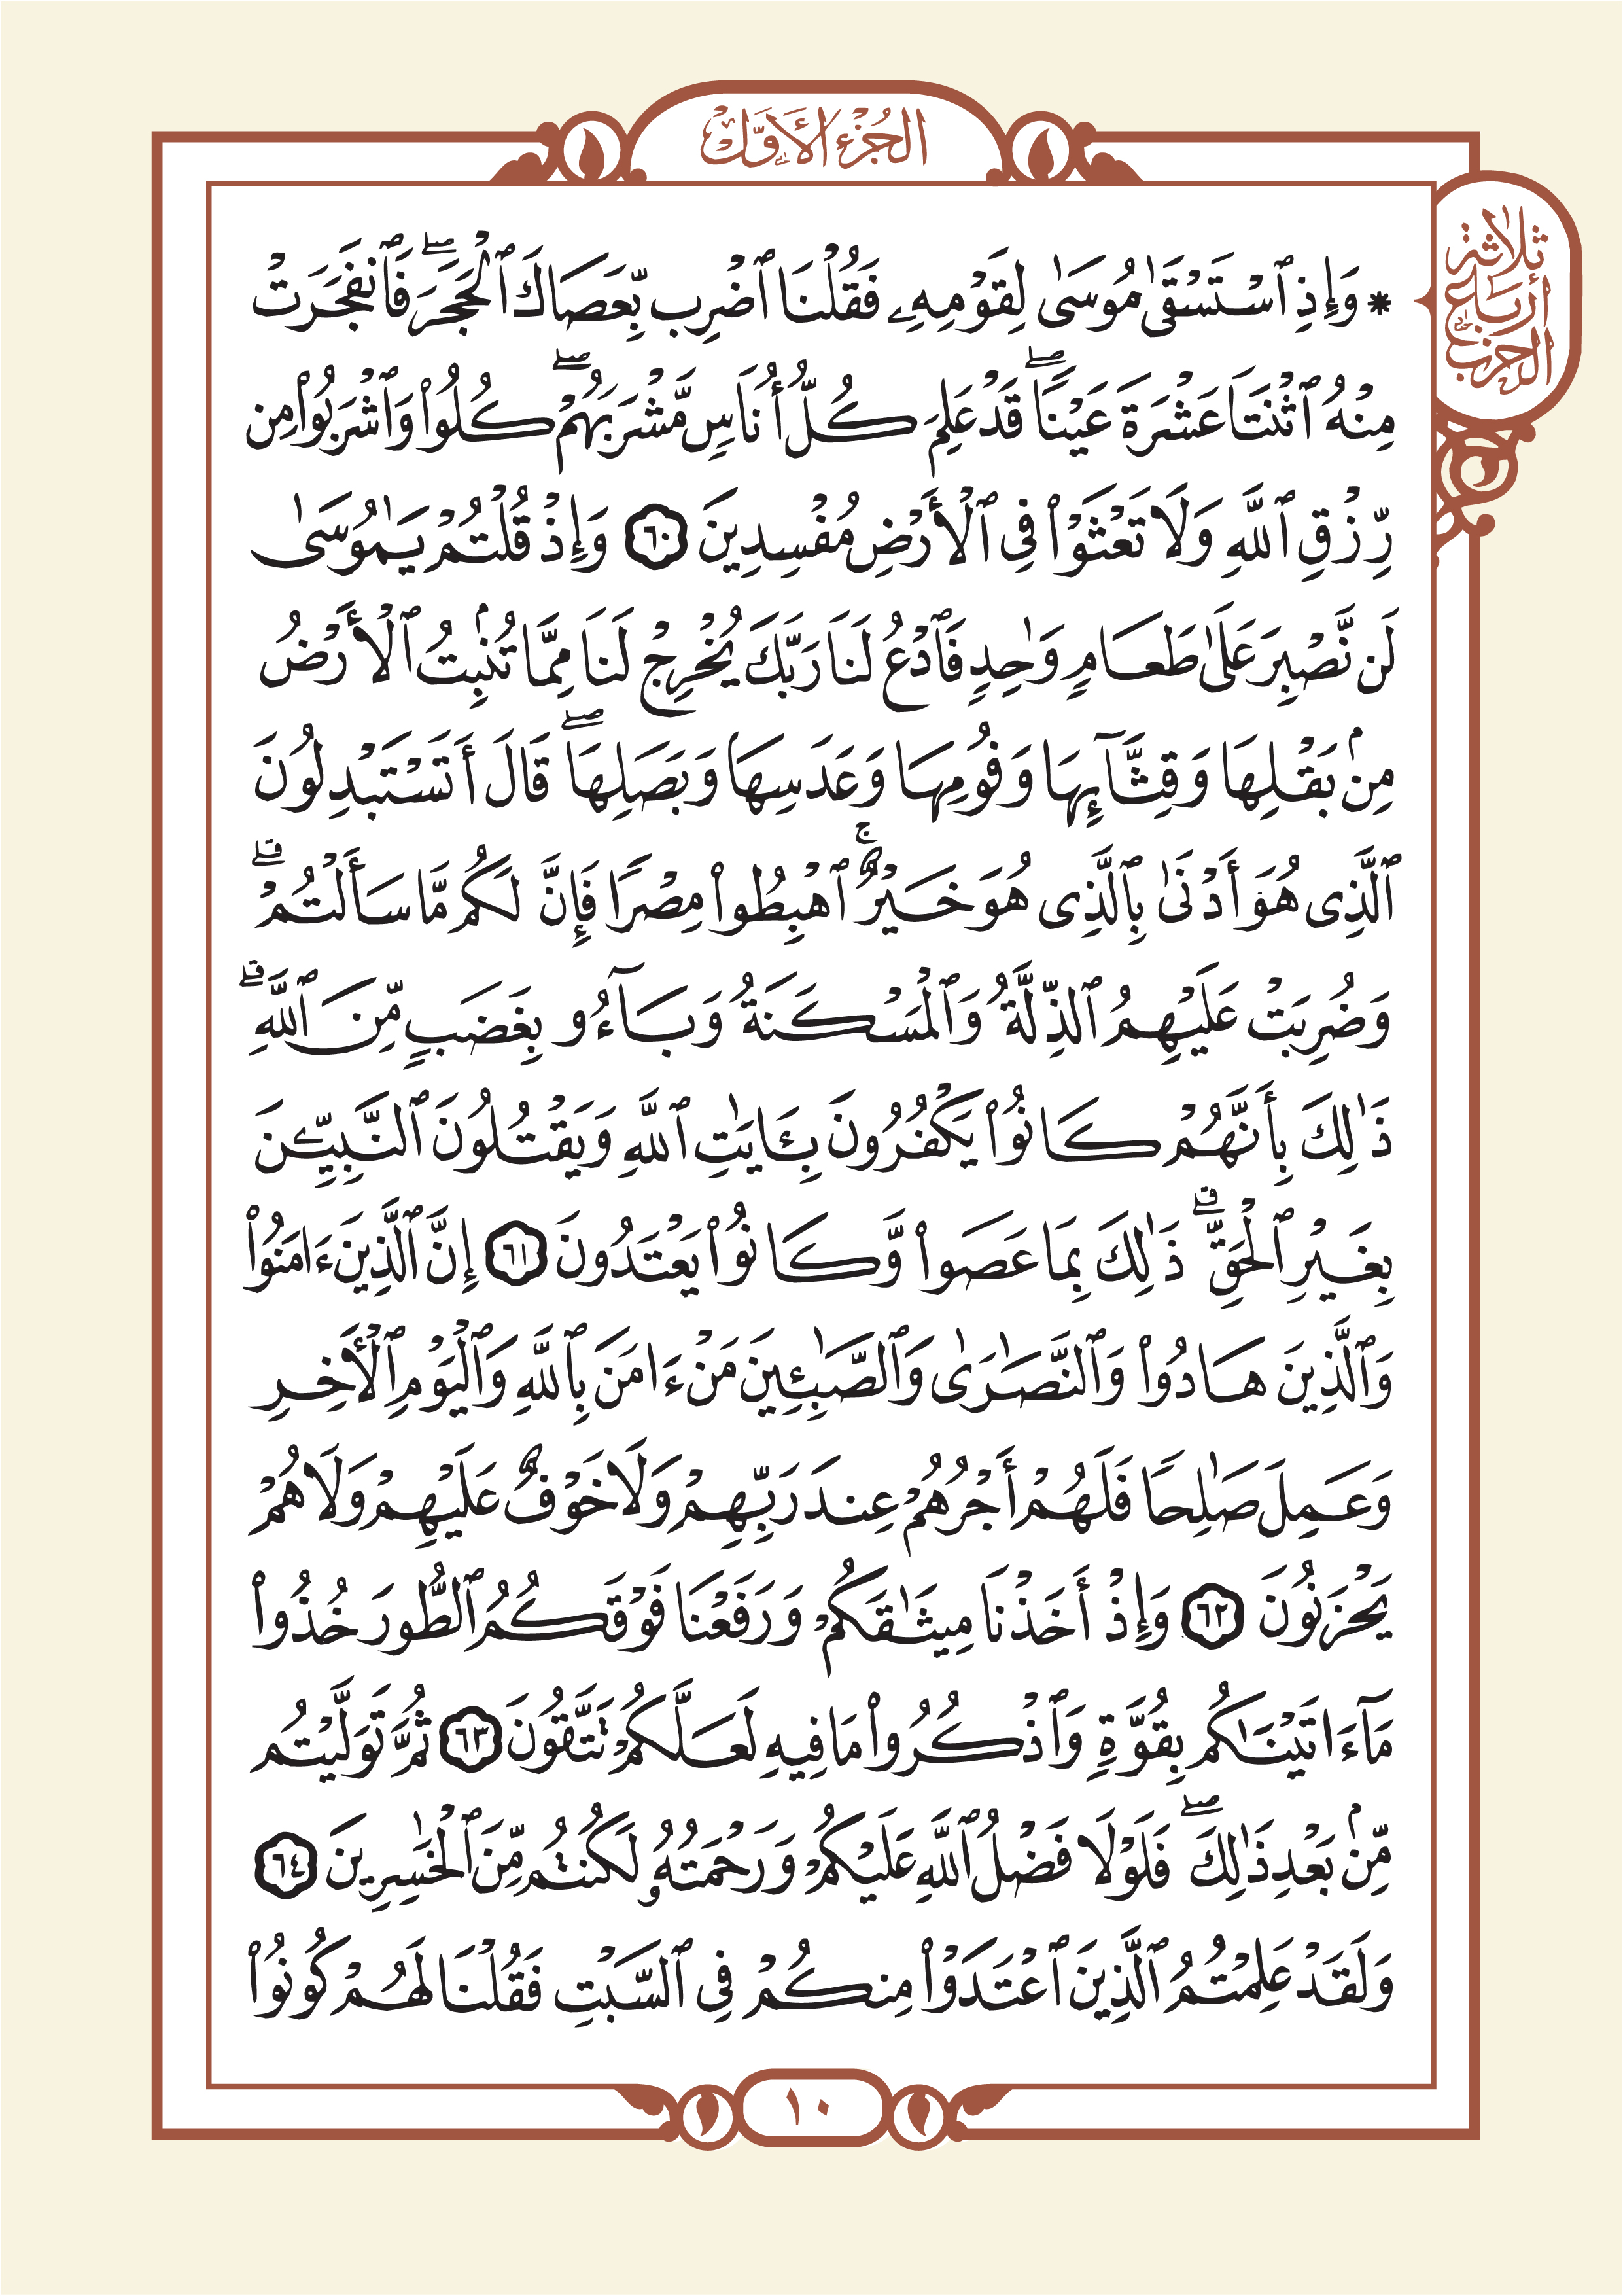 الجُزْءُ الأَوَّلُ
ثلاثة
أرباع
الحزب
* وَإِذِ ٱسْتَسْقَىٰ مُوسَىٰ لِقَوْمِهِۦ فَقُلْنَا ٱضْرِب بِّعَصَاكَ ٱلْحَجَرَۖ فَٱنفَجَرَتْ
مِنْهُ ٱثْنَتَا عَشْرَةَ عَيْنًاۖ قَدْ عَلِمَ كُلُّ أُنَاسٍ مَّشْرَبَهُمْۖ كُلُوا۟ وَٱشْرَبُوا۟ مِن
رِّزْقِ ٱللَّهِ وَلَا تَعْثَوْا۟ فِى ٱلْأَرْضِ مُفْسِدِينَ ٦٠ وَإِذْ قُلْتُمْ يَـٰمُوسَىٰ
لَن نَّصْبِرَ عَلَىٰ طَعَامٍ وَٰحِدٍ فَٱدْعُ لَنَا رَبَّكَ يُخْرِجْ لَنَا مِمَّا تُنۢبِتُ ٱلْأَرْضُ
مِنۢ بَقْلِهَا وَقِثَّآئِهَا وَفُومِهَا وَعَدَسِهَا وَبَصَلِهَاۖ قَالَ أَتَسْتَبْدِلُونَ
ٱلَّذِى هُوَ أَدْنَىٰ بِٱلَّذِى هُوَ خَيْرٌۚ ٱهْبِطُوا۟ مِصْرًا فَإِنَّ لَكُم مَّا سَأَلْتُمْۗ
وَضُرِبَتْ عَلَيْهِمُ ٱلذِّلَّةُ وَٱلْمَسْكَنَةُ وَبَآءُو بِغَضَبٍ مِّنَ ٱللَّهِۗ
ذَٰلِكَ بِأَنَّهُمْ كَانُوا۟ يَكْفُرُونَ بِـَٔايَـٰتِ ٱللَّهِ وَيَقْتُلُونَ ٱلنَّبِيِّـۧنَ
بِغَيْرِ ٱلْحَقِّۗ ذَٰلِكَ بِمَا عَصَوا۟ وَّكَانُوا۟ يَعْتَدُونَ ٦١ إِنَّ ٱلَّذِينَ ءَامَنُوا۟
وَٱلَّذِينَ هَادُوا۟ وَٱلنَّصَـٰرَىٰ وَٱلصَّـٰبِـِٔينَ مَنْ ءَامَنَ بِٱللَّهِ وَٱلْيَوْمِ ٱلْأَخِرِ
وَعَمِلَ صَـٰلِحًا فَلَهُمْ أَجْرُهُمْ عِندَ رَبِّهِمْ وَلَا خَوْفٌ عَلَيْهِمْ وَلَا هُمْ
يَحْزَنُونَ ٦٢ وَإِذْ أَخَذْنَا مِيثَـٰقَكُمْ وَرَفَعْنَا فَوْقَكُمُ ٱلطُّورَ خُذُوا۟
مَآ ءَاتَيْنَـٰكُم بِقُوَّةٍ وَٱذْكُرُوا۟ مَا فِيهِ لَعَلَّكُمْ تَتَّقُونَ ٦٣ ثُمَّ تَوَلَّيْتُم
مِّنۢ بَعْدِ ذَٰلِكَۖ فَلَوْلَا فَضْلُ ٱللَّهِ عَلَيْكُمْ وَرَحْمَتُهُۥ لَكُنتُم مِّنَ ٱلْخَـٰسِرِينَ ٦٤
وَلَقَدْ عَلِمْتُمُ ٱلَّذِينَ ٱعْتَدَوْا۟ مِنكُمْ فِى ٱلسَّبْتِ فَقُلْنَا لَهُمْ كُونُوا۟
١٠